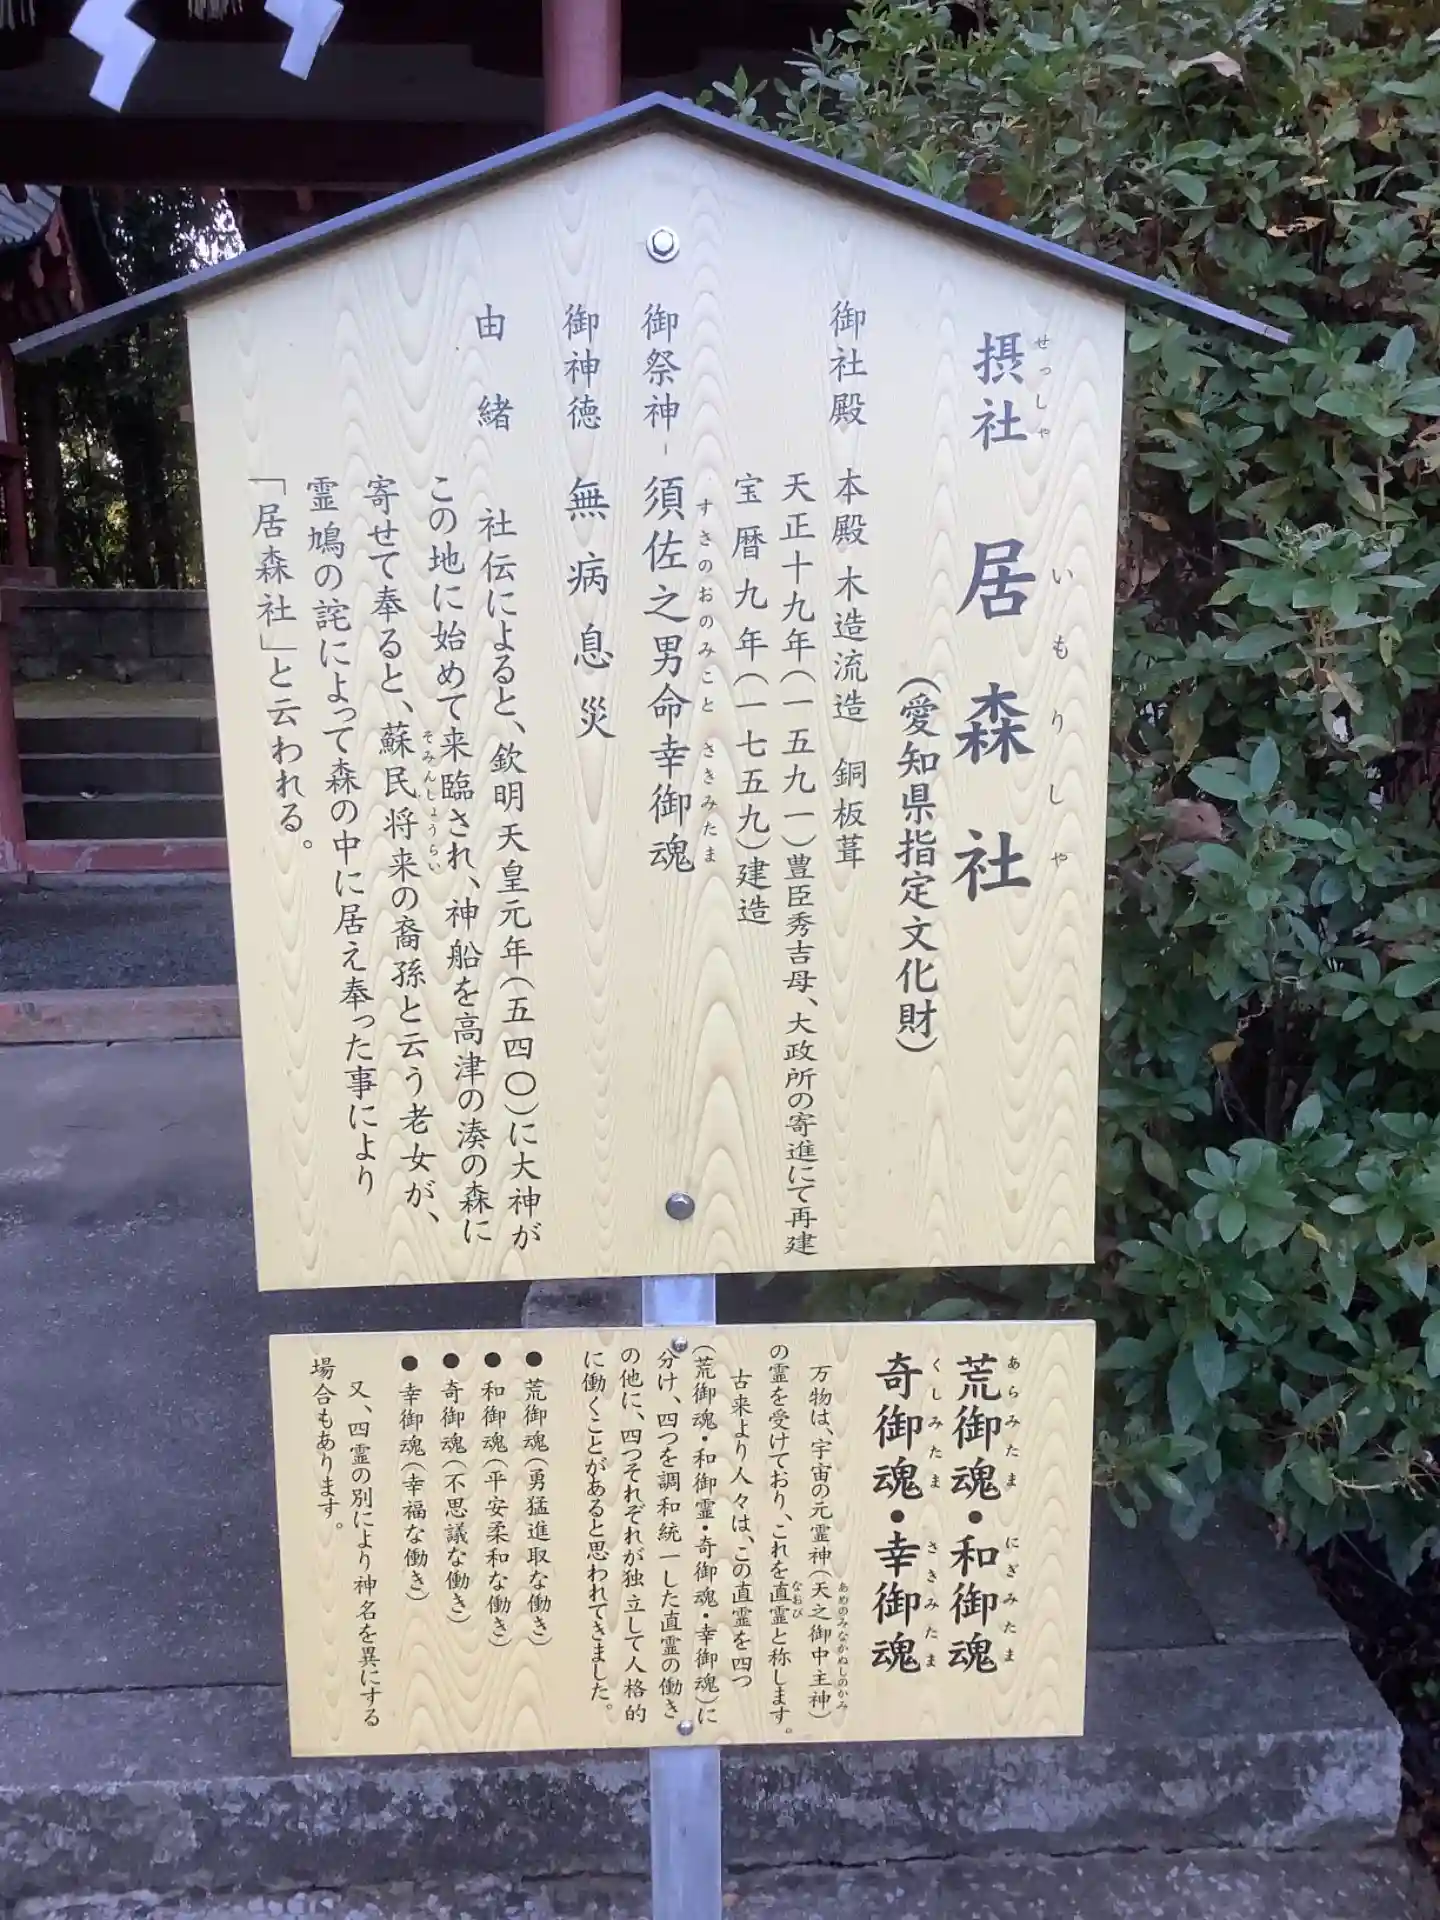 摂社　居森社
せっしゃ　いもりしゃ
（愛知県指定文化財）
御社殿　本殿　木造流造　銅板葺
天正十九年（一五九一）豊臣秀吉母、大政所の寄進にて再建
宝暦九年（一七五九）建造
御祭神　須佐之男命幸御魂
すさのおのみこと　さきみたま
御神徳　無病息災
由緒　社伝によると、欽明天皇元年（五四〇）に大神が
この地に始めて来臨され、神船を高津の湊の森に
寄せて奉ると、蘇民将来の裔孫と云う老女が、
そみんしょうらい
霊鳩の詫によって森の中に居え奉った事により
「居森社」と云われる。
荒御魂・和御魂
あらみたま　にぎみたま
奇御魂・幸御魂
くしみたま　さきみたま
万物は、宇宙の元霊神（天之御中主神）
あめのみなかぬしのかみ
の霊を受けており、これを直霊と称します。
なおび
古来より人々は、この直霊を四つ
（荒御魂・和御霊・奇御魂・幸御魂）に
分け、四つを調和統一した直霊の働き
の他に、四つそれぞれが独立して人格的
に働くことがあると思われてきました。
●荒御魂（勇猛進取な働き）
●和御魂（平安柔和な働き）
●奇御魂（不思議な働き）
●幸御魂（幸福な働き）
又、四霊の別により神名を異にする
場合もあります。